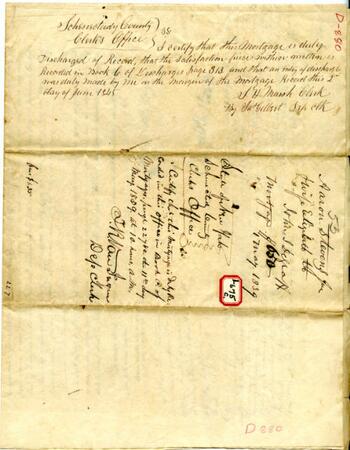 D-880
Schenectady County
Clerk's Office } SS
I certify that this Mortgage is duly
Discharged of Record, that the Satisfaction piece
Recorded in Book C of Discharges page 313 and that an entry of discharge
was duly made by me in the margin of the Mortgage Record this 2
day of June 1845
S H Marsh Clerk
By Dep Clk
Aaron Stevens
& wife Elizabeth
To
John
Mortgage
May 1839
675
C
State of New York
Schenectady County
Clerks Office } SS
I Certify that this Mortgage is duly Re
corded in this office in Book R of
Mortgages page 227 on the 11th day
May 1839 at 10 hour A.M.
Dep Clerk
227
D 880